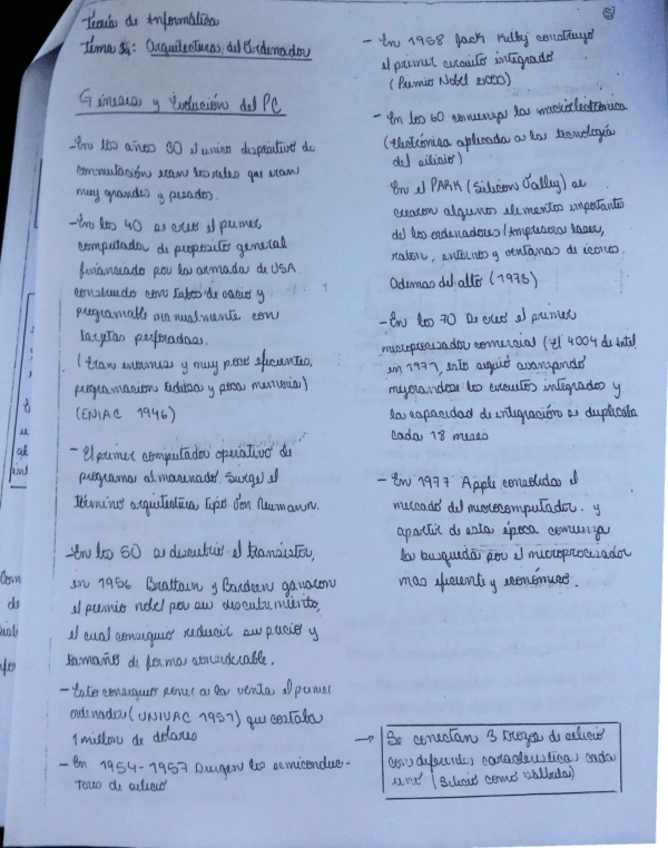 Teoría de Informática
Tema 34: Arquitecturas del Ordenador
Génesis y Evolución del PC
- En los años 30 el unico dispositivo de
conmutación eran los reles que eran
muy grandes y pesados.
- En los 40 se creo el primer
computador de proposito general
financiado por la armada de USA
construido con tubos de vacio y
programable manualmente con
tarjetas perforadas.
(Eran enormes y muy poco eficientes,
programacion tediosa y poca memoria)
(ENIAC 1946)
- El primer computador operativo de
programa almacenado. Surge el
término arquitectura tipo Von Neumann.
- En los 50 se descubrió el transistor,
en 1956 Brattain y Bardeen ganaron
el premio nobel por su descubrimiento,
el cual consiguio reducir su precio y
tamaño de forma considerable.
- Esto consiguio poner a la venta el primer
ordenador (UNIVAC 1951) que costaba
1 millon de dolares
- En 1954-1957 Surgen los semiconduc-
tores de silicio
- En 1958 Jack Kilby construyó
el primer circuito integrado
(Premio Nobel 2000)
- En los 60 comienza la microelectrónica
(electrónica aplicada a la tecnología
del silicio)
En el PARK (Silicon Valley) se
crearon algunos elementos importantes
de los ordenadores (Impresora laser,
raton, entornos y ventanas de iconos.
Ademas del alto (1973)
- En los 70 se creó el primer
microprocesador comercial (El 4004 de Intel
en 1971, esto siguió avanzando
mejorandose los circuitos integrados y
la capacidad de integración se duplicaba
cada 18 meses
- En 1977 Apple consolida el
mercado del microcomputador. y
apartir de esta época comienza
la busqueda por el microprocesador
mas eficiente y económico.
→ Se conectan 3 trozos de silicio
con diferentes caracteristicas cada
uno (Silicio como vallada)